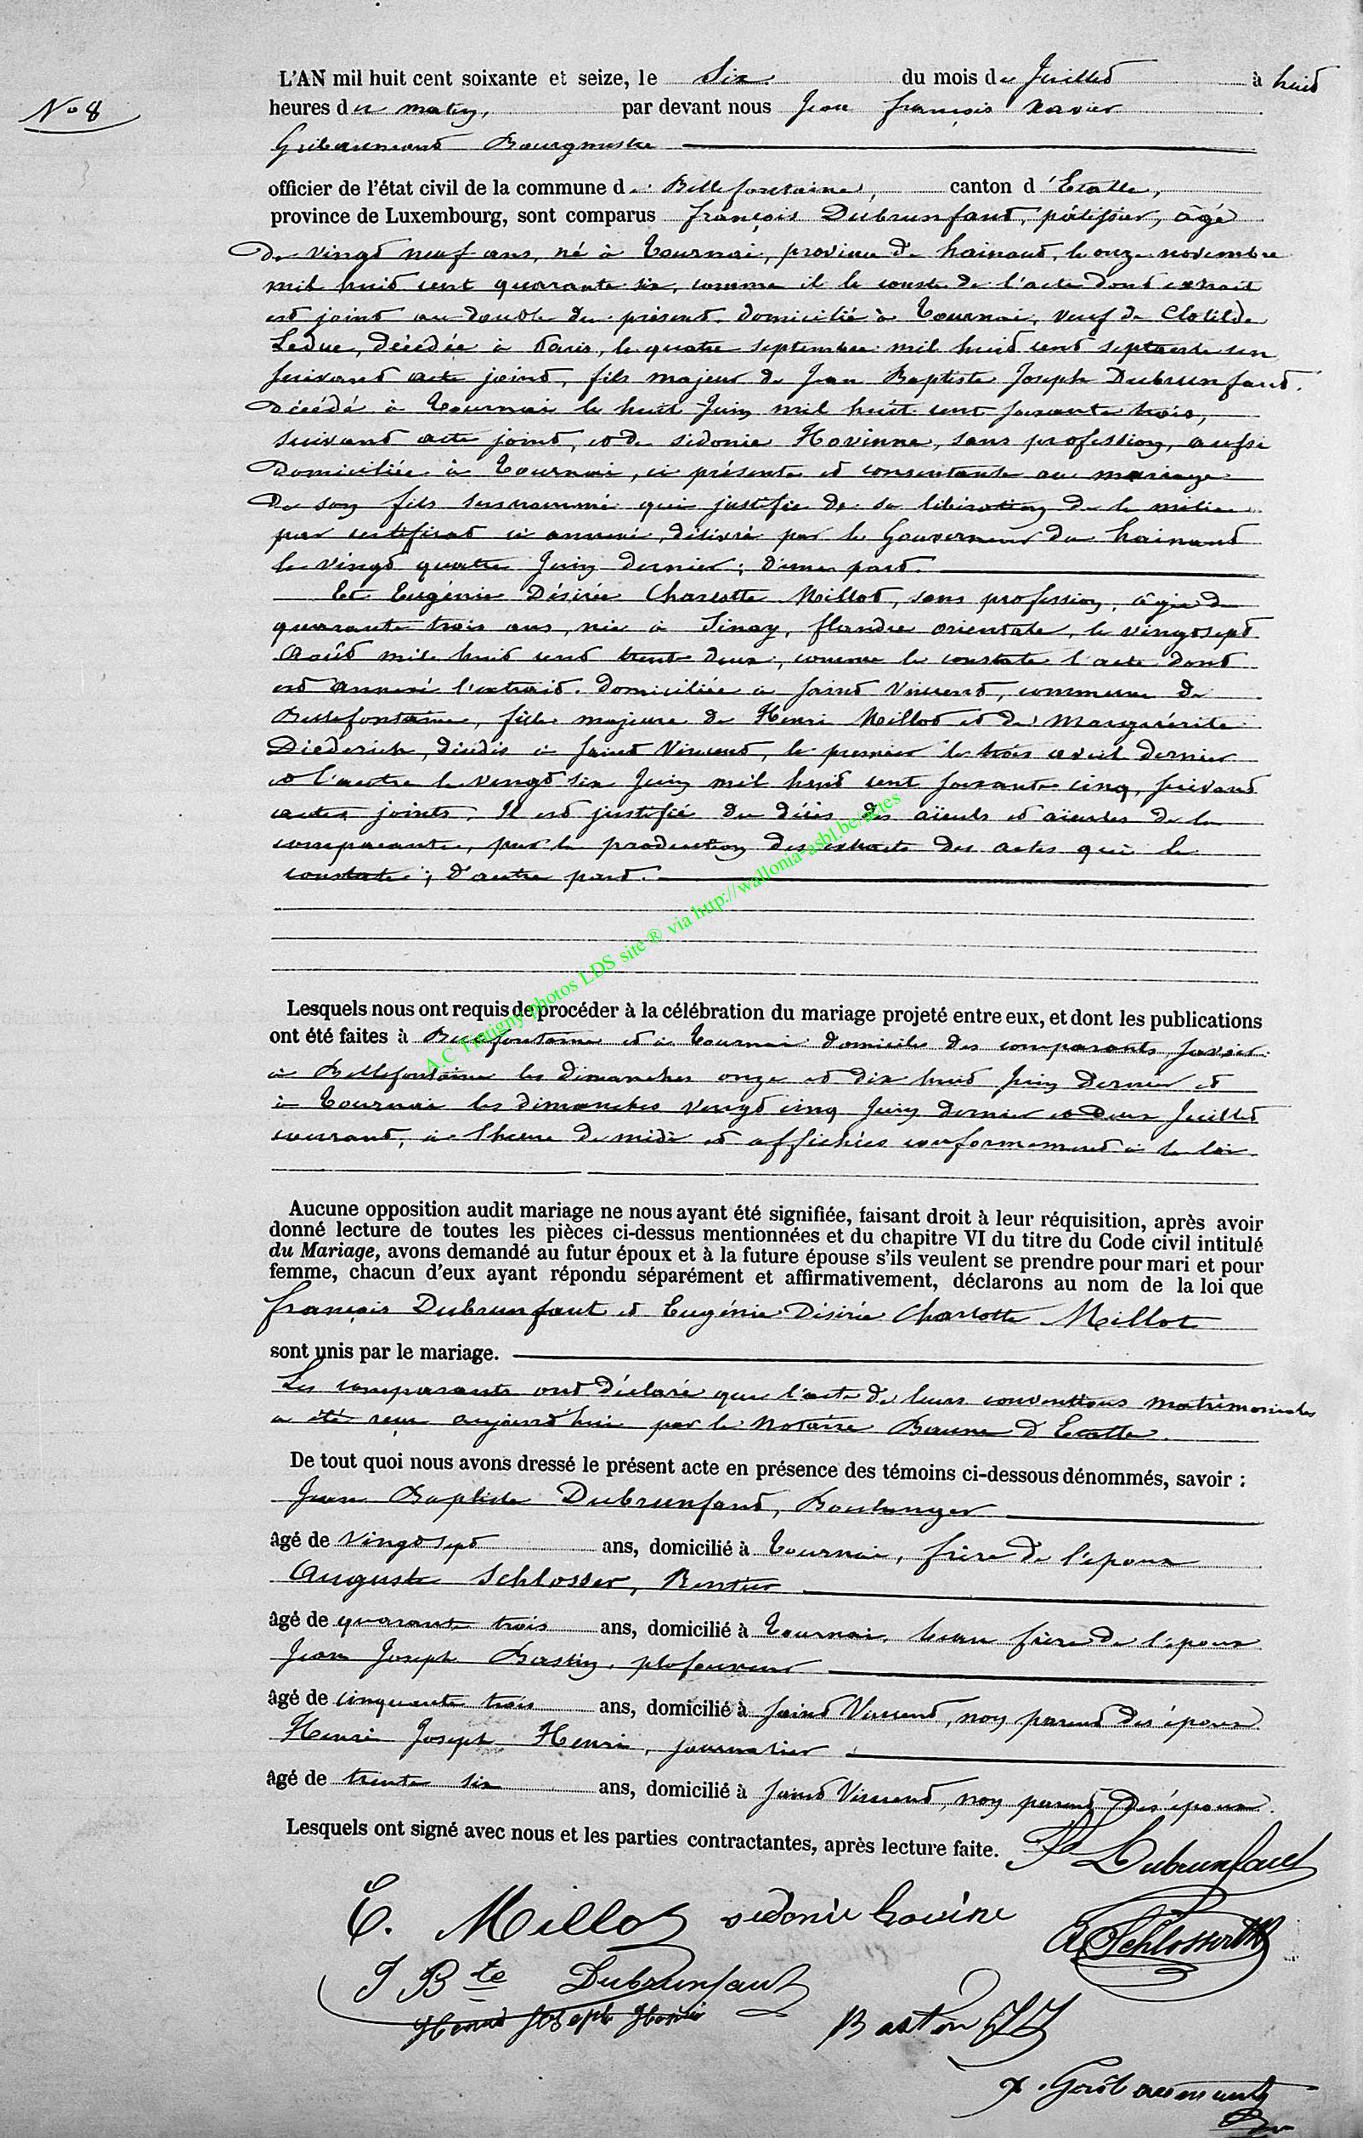 L'AN mil huit cent soixante et seize, le six du mois de Juillet à huit
No 8
heures du matin, par devant nous Jean françois xavier
Gribaumont Bourgmestre
officier de l'état civil de la commune de Bellefontaine, canton d'Etalle,
province de Luxembourg, sont comparus françois Dubrunfaut, pâtissier, âgé
De vingt neuf ans, né à Tournai, province de hainaut, le onze novembre
mil huit cent quarante six, comme il le conste de l'acte dont extrait
est joint au double du présent, domicilié à Tournai, veuf de Clotilde
Leduc, décédée à Paris, le quatre septembre mil huit cent septante un
suivant acte joint, fils majeur de Jean Baptiste Joseph Dubrunfaut,
Décédé à Tournai le huit Juin mil huit cent soixante trois,
suivant acte joint, et de sidonie Hovinne, sans profession, aussi
Domiciliée à Tournai, ci présente et consentante au mariage
De son fils susnommé qui justifie de sa libération de la milice
par certificat ci annexé, délivré par le Gouverneur du hainaut
le vingt quatre Juin dernier; d'une part.
Et Eugénie Désirée Charlotte Millot, sans profession, âgée de
quarante trois ans, née à Sinay, flandre orientale, le vingt sept
Août mil huit cent trente deux, comme le constate l'acte dont
est annexé l'extrait, domiciliée à saint Vincent, commune de
Bellefontaine, fille majeure de Henri Millot et de Marguérite
Diederich, décédés à saint Vincent, le premier le trois avril dernier
et l'autre le vingt six Juin mil huit cent soixante cinq, suivant
actes joints. Il est justifié du décès des aïeuls et aïeules de la
comparante, par la production des extraits des actes qui le
constate; d'autre part.
Lesquels nous ont requis de procéder à la célébration du mariage projeté entre eux, et dont les publications
ont été faites à Bellefontaine et à Tournai domicile des comparants savoir
à Bellefontaine les dimanches onze et dix huit Juin Dernier et
à Tournai les dimanches vingt cinq Juin dernier et deux Juillet
courant, à l'heure de midi et affichées conformement à la loi.
Aucune opposition audit mariage ne nous ayant été signifiée, faisant droit à leur réquisition, après avoir
donné lecture de toutes les pièces ci-dessus mentionnées et du chapitre VI du titre du Code civil intitulé
du Mariage, avons demandé au futur époux et à la future épouse s'ils veulent se prendre pour mari et pour
femme, chacun d'eux ayant répondu séparément et affirmativement, déclarons au nom de la loi que
françois Dubrunfaut et Eugénie Désirée Charlotte Millot
sont unis par le mariage.
Les comparants ont déclaré que l'acte de leurs conventions matrimoniales
a été reçu aujourd'hui par le Notaire Baume D'Etalle.
De tout quoi nous avons dressé le présent acte en présence des témoins ci-dessous dénommés, savoir :
Jean Baptiste Dubrunfaut, Boulanger
âgé de vingt sept ans, domicilié à Tournai, frère De l'époux
Auguste Schlosser, Rentier
âgé de quarante trois ans, domicilié à Tournai, beau frère de l'époux
Jean Joseph Bastin, plafonneur
âgé de cinquante trois ans, domicilié à saint Vincent, non parent des époux
Henri Joseph Henri, journalier
âgé de trente six ans, domicilié à saint Vincent, non parent des époux.
Lesquels ont signé avec nous et les parties contractantes, après lecture faite.
F Dubrunfaut
E. Millot sedonie hovine
A Schlosser
J Bte Dubrunfaut
Henri Joseph Henri
Bastin JJ
x. Gribaumont
A.C Tintigny photos LDS site ® via http://wallonia-asbl.be/actes